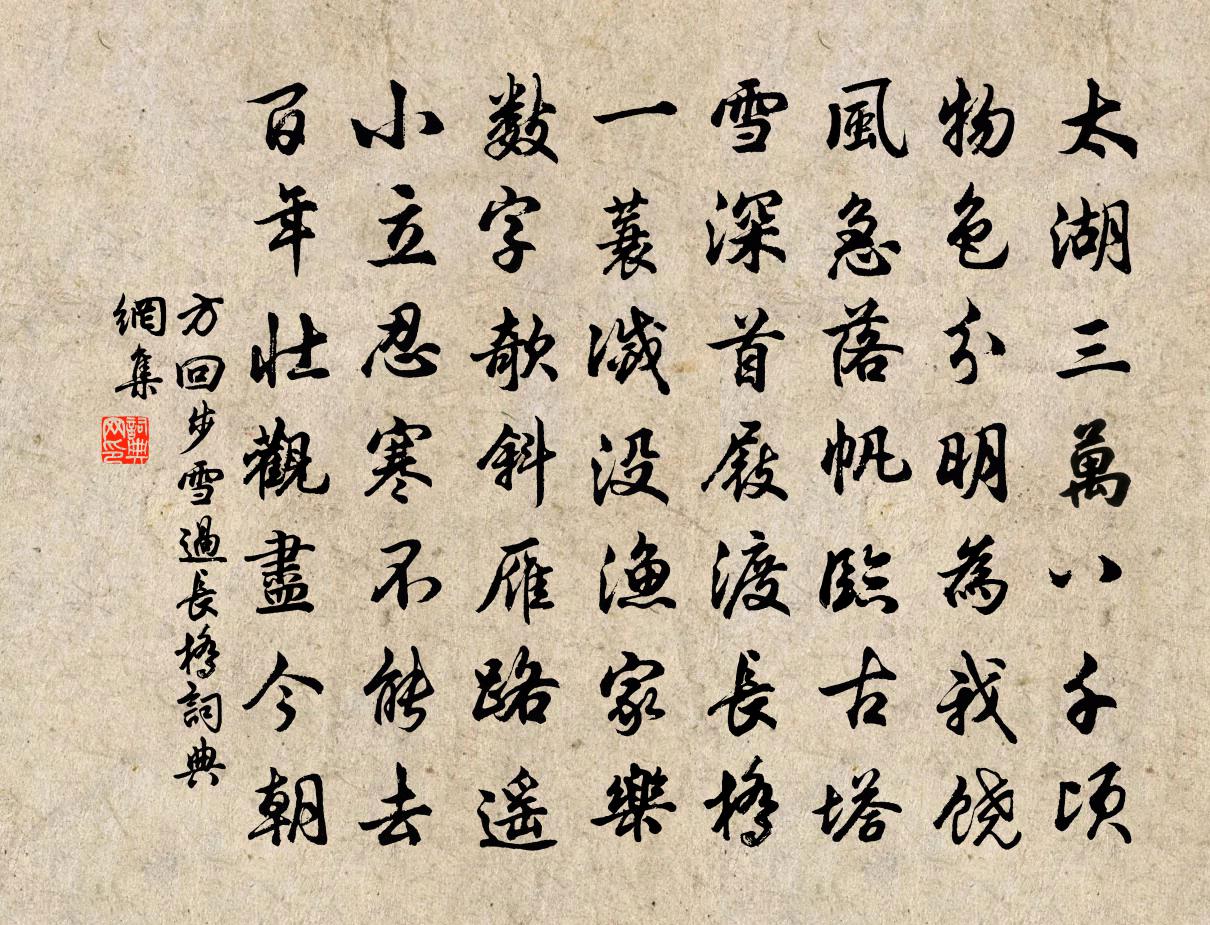 太湖三萬八千頃
物色分明為我饒
風急落帆臨古塔
雪深首屐渡長橋
一蓑滅没漁家樂
數字欹斜雁路遥
小立忍寒不能去
百年壯觀盡今朝
方回步雪過長橋詞典
網集
詞典網印